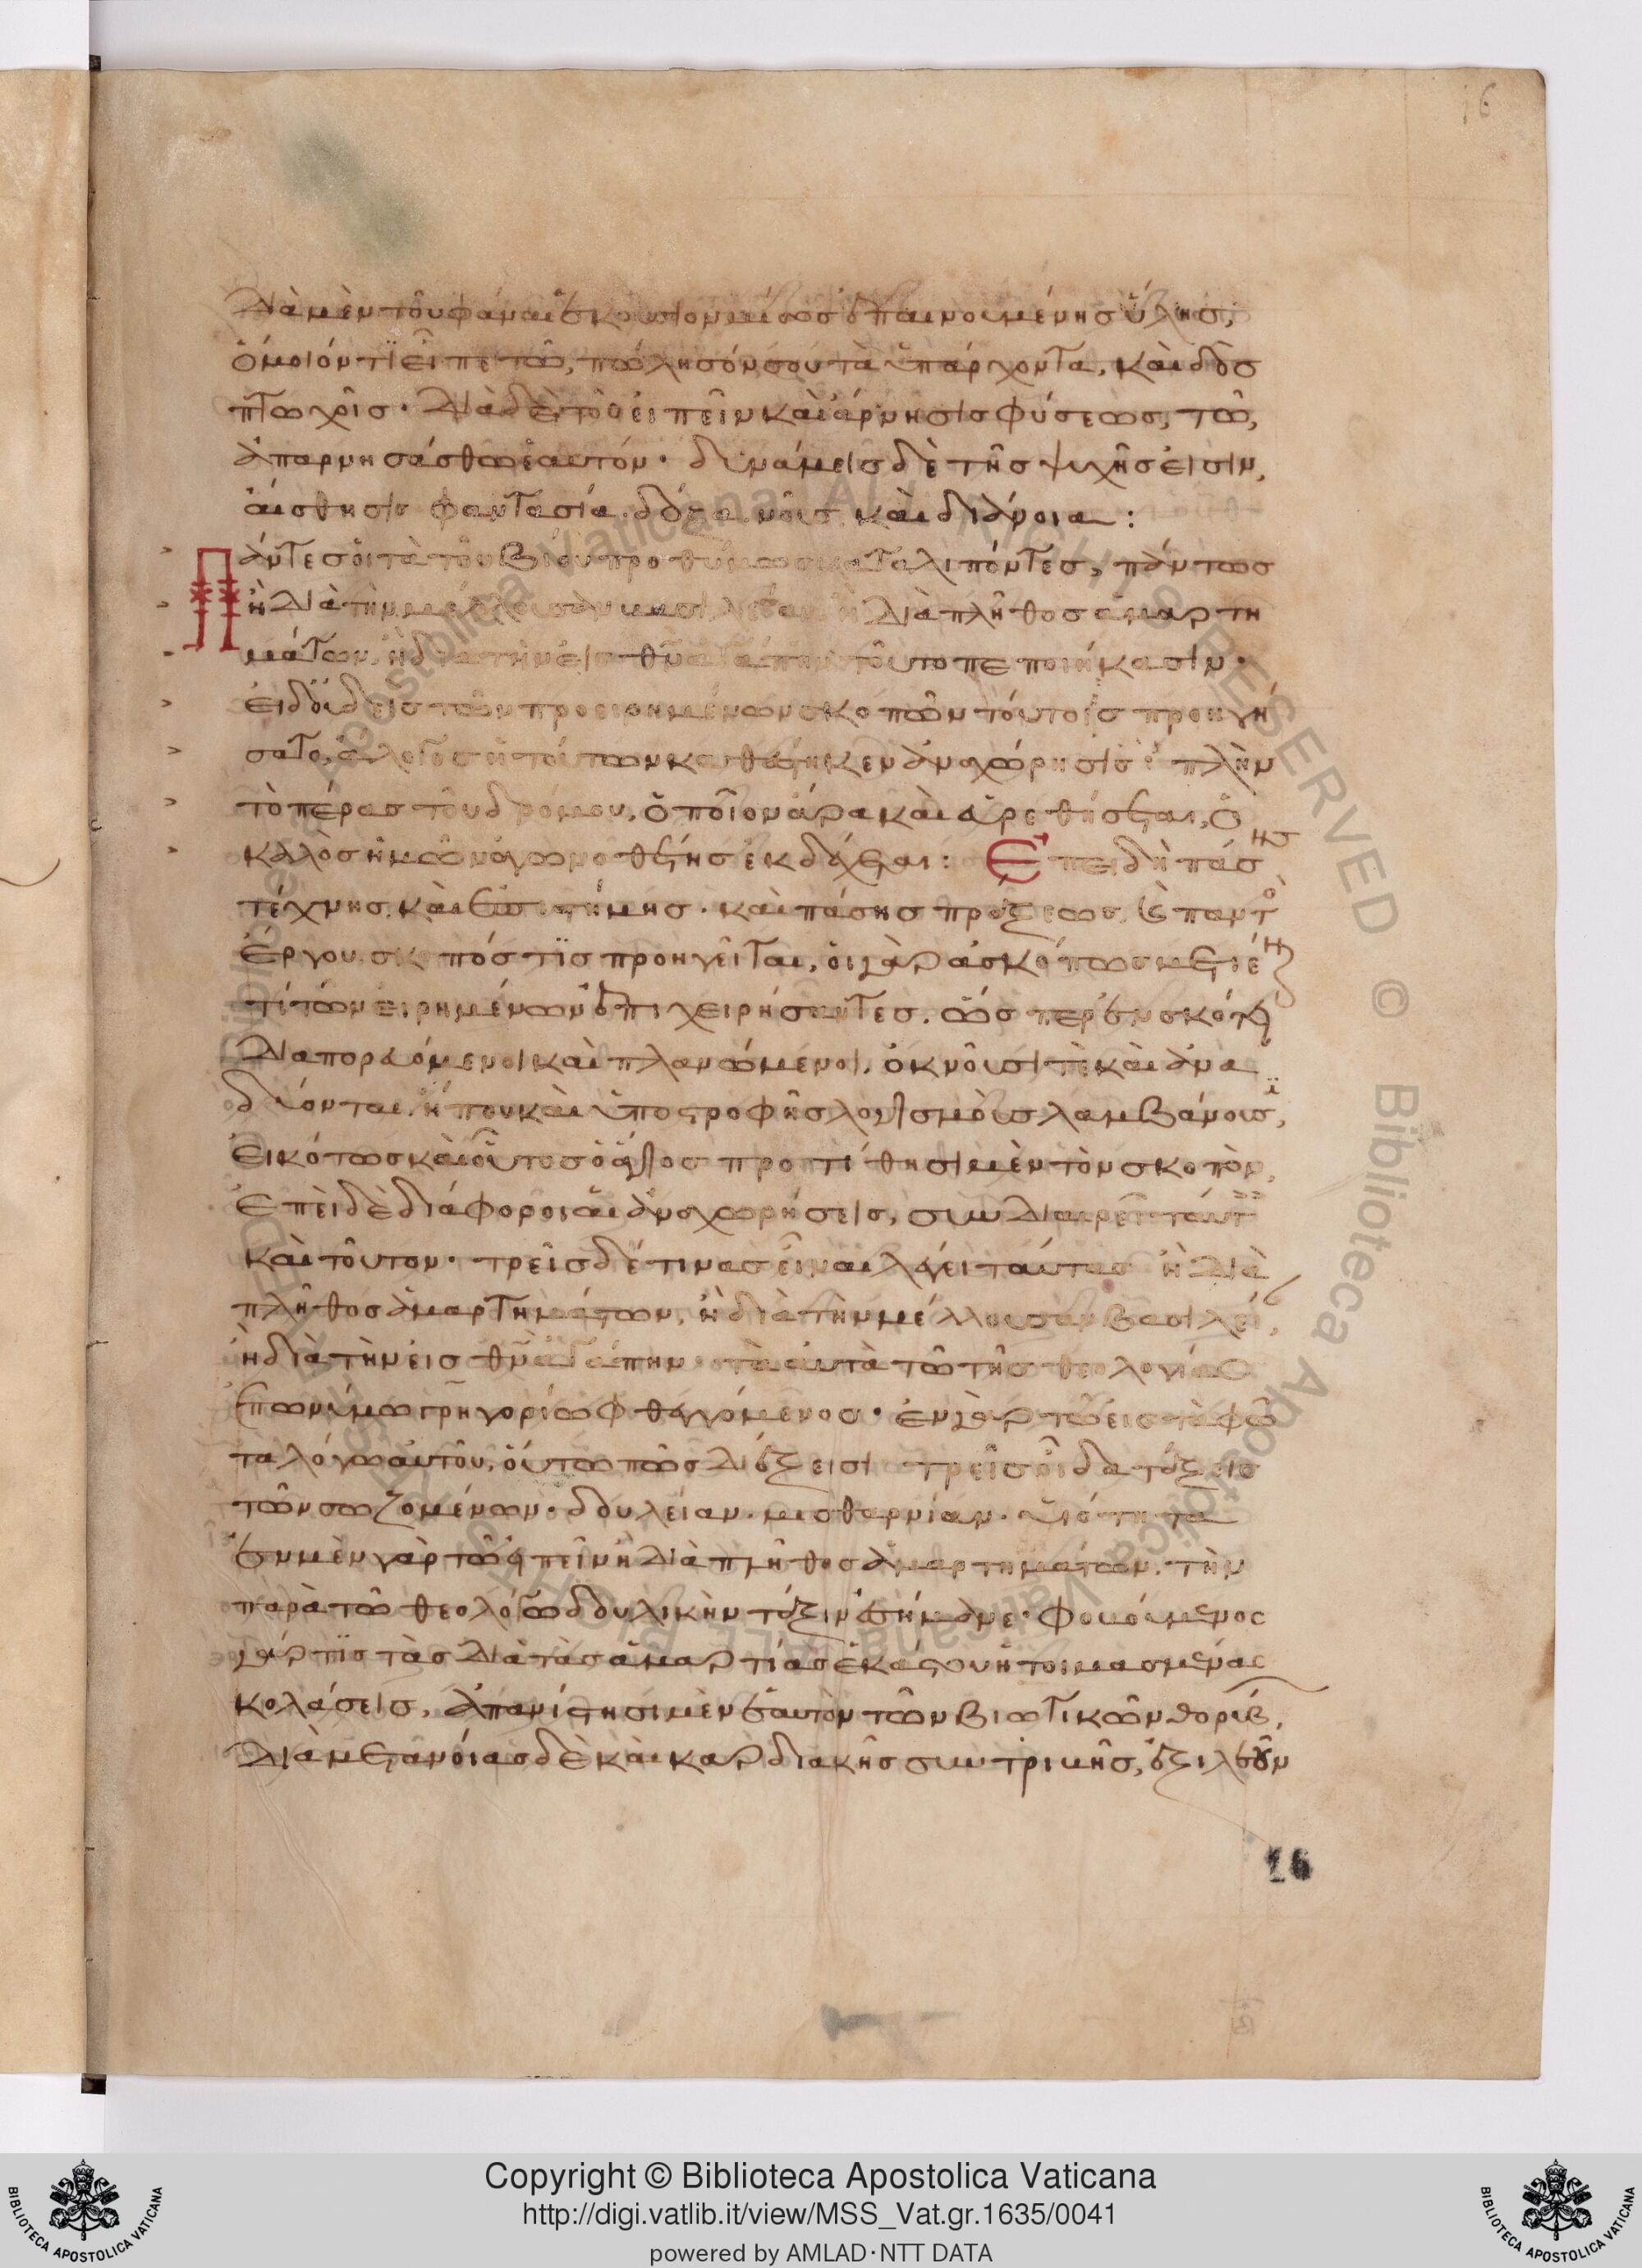 16
Διὰ μὲν τοῦ φάναι ἑκούσιον μῖσος ἐπαινουμένης ὕλης,
ὅμοιόν τι εἶπε τῶ, πώλησόν σου τὰ ὑπάρχοντα, καὶ δὸς
πτωχοῖς· Διὰ δὲ τοῦ εἰπεῖν καὶ ἄρνησις φύσεως, τῶ,
ἀπαρνησάσθω ἑαυτόν· δυνάμεις δὲ τῆς ψυχῆς εἰσιν,
αἴσθησις φαντασία· δόξα νοῦς καὶ διάνοια:
Πάντες οἱ τὰ τοῦ βίου προθύμως καταλιπόντες, πάντως
ἢ διὰ τὴν μέλλουσαν βασιλείαν ἢ διὰ πλῆθος ἁμαρτη
μάτων, ἢ διὰ τὴν εἰς θν ἀγάπην τοῦτο πεποιήκασιν·
εἰ δ' οὐδεὶς τῶν προειρημένων σκοπῶν τούτοις προηγή
σατο, ἄλογος ἡ τούτων καθέστηκεν ἀναχώρησις· πλὴν
τὸ πέρας τοῦ δρόμου, ὁποῖον ἄρα καὶ εὑρεθήσεται, ὁ
καλὸς ἡμῶν ἀγωνοθέτης ἐκδέχεται: Ἐπειδὴ πάσης
τέχνης καὶ ἐπιστήμης· καὶ πάσης πράξεως, καὶ παντὸ
ἔργου σκοπός τις προηγεῖται, οἱ γὰρ ἀσκόπως μετιέ
τι τῶν εἰρημένων ἐπιχειρήσαντες, ὥσπερ ἐν σκότει
Διαπορευόμενοι καὶ πλανώμενοι, ὀκνοῦσί τε καὶ ἀνα
δύονται, ἤπου καὶ ὑποστροφῆς λογισμοὺς λαμβάνουσι,
Εἰκότως καὶ οὗτος ὁ ἅγιος προτίθησι μὲν τὸν σκοπὸν,
Ἐπεὶ δὲ διάφοροι αἱ ἀναχωρήσεις, συνδιαιρεῖ ταύτ
καὶ τοῦτον· τρεῖς δέ τινας εἶναι λέγει ταύτας ἢ διὰ
πλῆθος ἁμαρτημάτων, ἢ διὰ τὴν μέλλουσαν βασιλεί,
ἢ διὰ τὴν εἰς θν ἀγάπην· τὰ αὐτὰ τῶ τῆς θεολογίας
ἐπωνύμω γρηγορίω φθεγγόμενος· ἐν γὰρ τῶ εἰς τὰ φῶ
τα λόγω αὐτοῦ, οὕτω πως διέξεισι· τρεῖς οἶδα τάξεις
τῶν σωζομένων· δουλείαν· μισθαρνίαν· υἱότητα
ἐν μὲν γὰρ τῶ εἰπεῖν ἢ διὰ πλῆθος ἁμαρτημάτων, τὴν
παρὰ τῶ θεολόγω δουλικὴν τάξιν ἐσήμανε· φοβούμενος
γάρ τις τὰς διὰ τὰς ἁμαρτίας ἑκάστου ἡτοιμασμένας
κολάσεις, ἀπανίστησι μὲν ἑαυτὸν τῶν βιωτικῶν θορύβ,
Διὰ μετανοίας δὲ καὶ καρδιακῆς συντριβῆς, ἐξιλεοῦν
16
Copyright © Biblioteca Apostolica Vaticana
http://digi.vatlib.it/view/MSS_Vat.gr.1635/0041
powered by AMLAD·NTT DATA